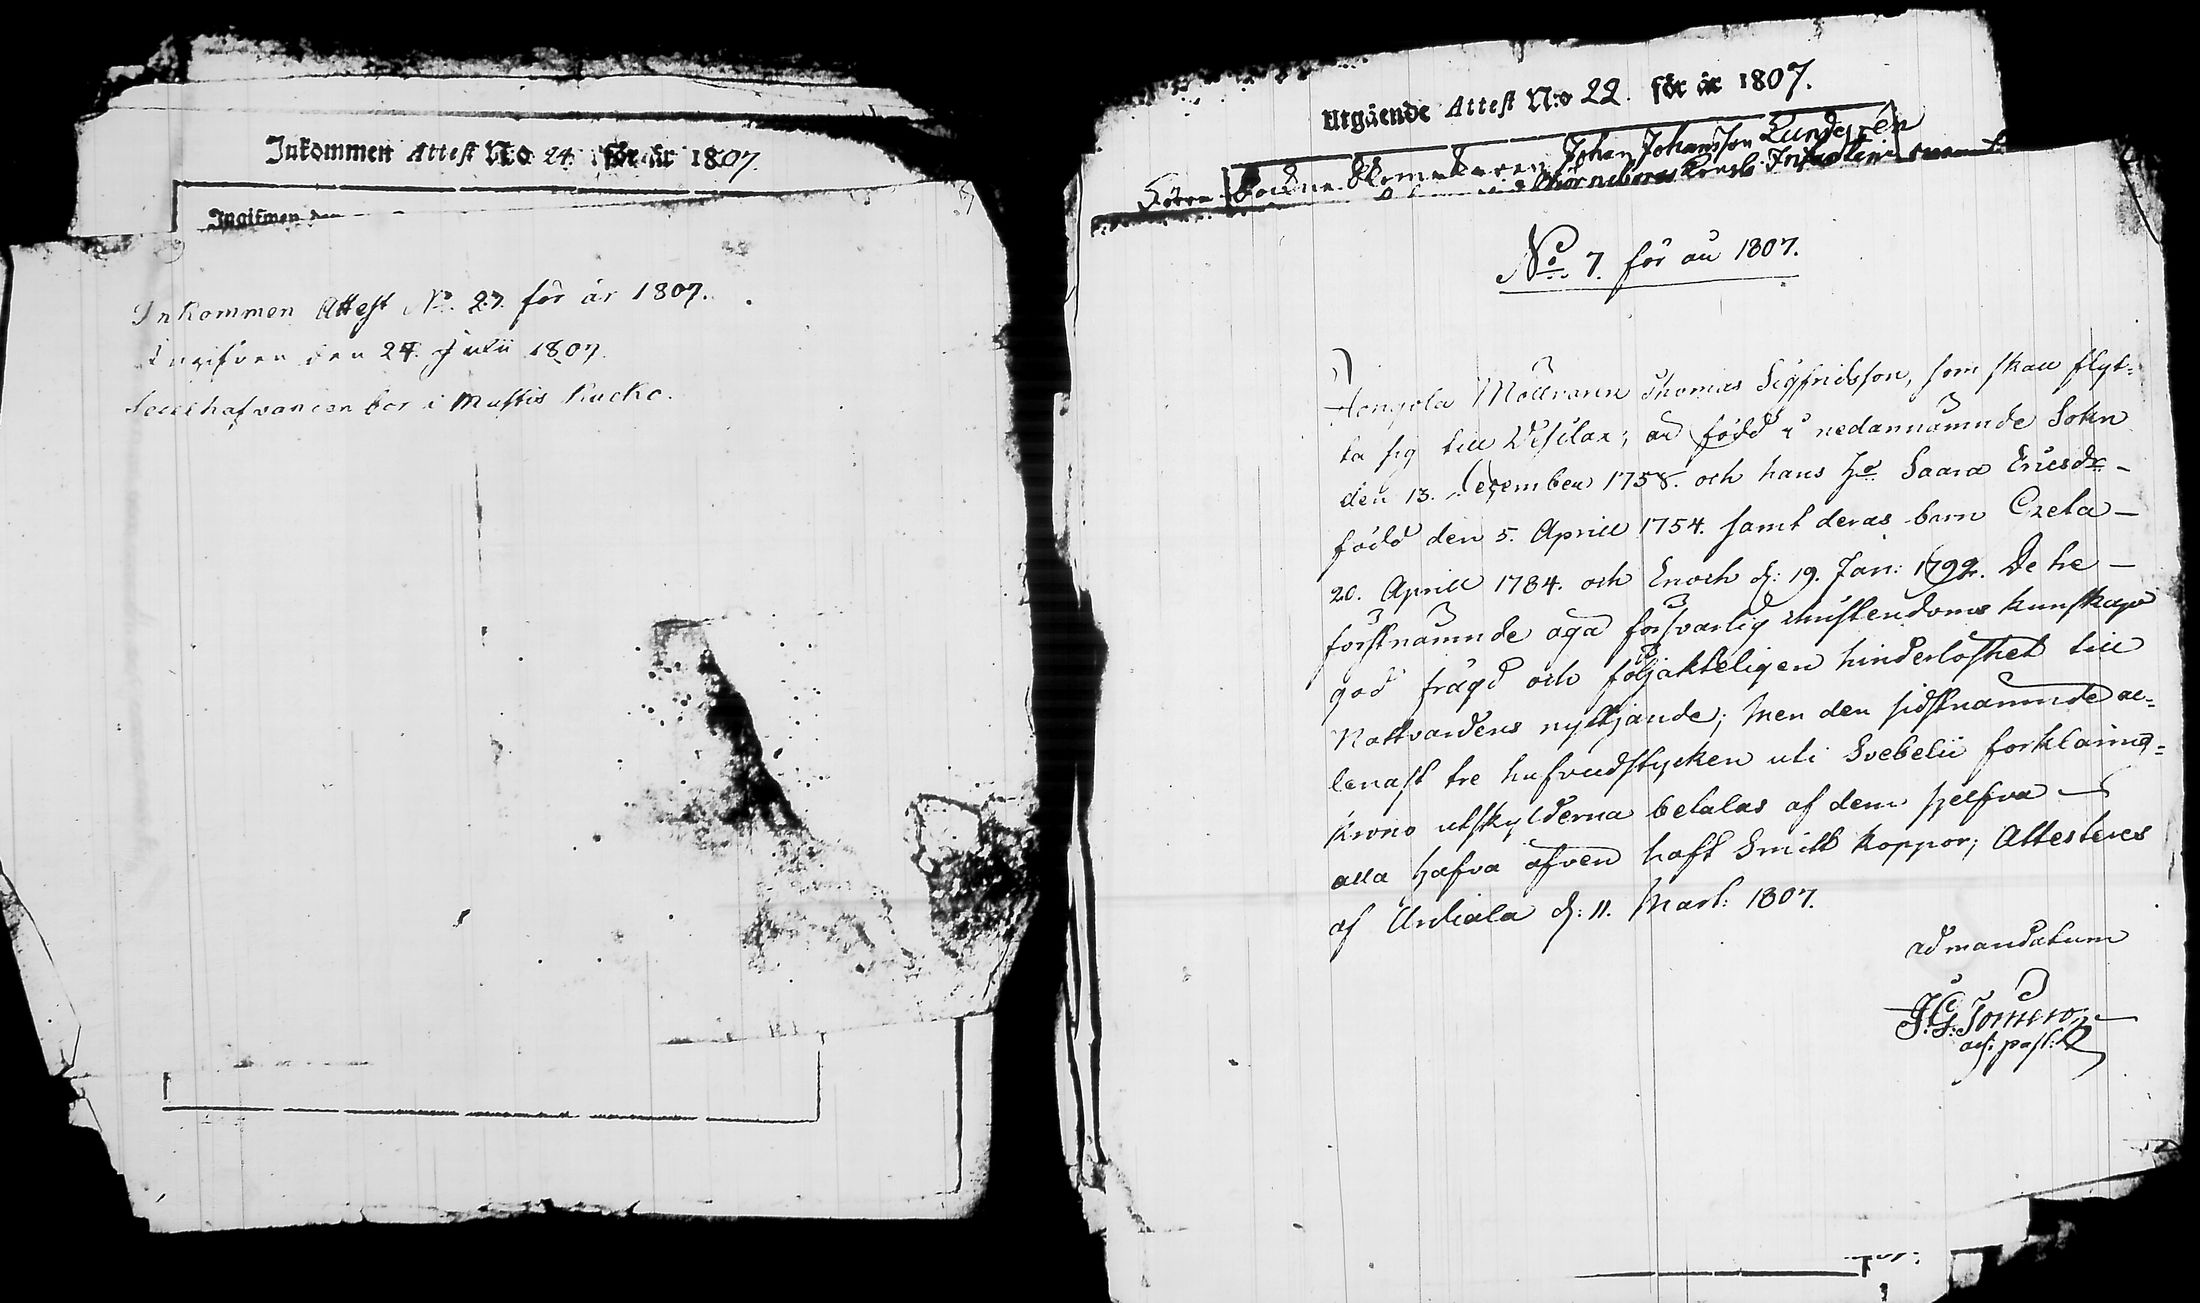 Inkommen Attest N:o 24. för år 1807.
Ingifwen den
Inkommen Attest No. 27. för år 1807.
Ingifven den 24. Julii 1807.
hafvanden bor i Mustis Kucko.
Utgående Attest N:o 22. för år 1807.
Johan Johansson Lundgrén
Förre Björneborgs Infanterie
No. 7. för år 1807.
Mölleraren Thomas Sigfridsson, som skall flyt-
ta sig till Vesilax; är född i nedannämnde Sokn
den 13. December 1758. och hans Ho Saara Ericsdr
född den 5. Aprill 1754. samt deras barn Greta
20. Aprill 1784. och Enoch d: 19. Jan: 1792. De tre
förstnämnde äga försvarlig christendoms kunskap
god frägd och följakteligen hinderlöshet till
Nattvardens nyttjande; Men den sidstnämnde al-
lenast tre hufvudstycken uti Svebelii förklaring
Krono utskylderna betalas af dem sjelfva
alla hafva äfven haft Smitt koppor; Attesteres
af Urdiala d: 11. Mart: 1807.
ad mandatum
J. G.
adj: past: